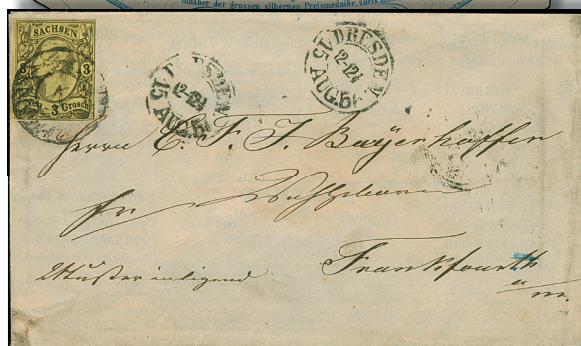 Inhaber der grossen silbernen Preismedaille,
SACHSEN
3 3
Neu 3 Grosch
DRESDEN
12-12¼
AUG. 5
DRESDEN
12-12¼
AUG. 56
Herrn C. F. J. Bayenhoffer
fr
Muster inligend
Frankfourth
a/m.